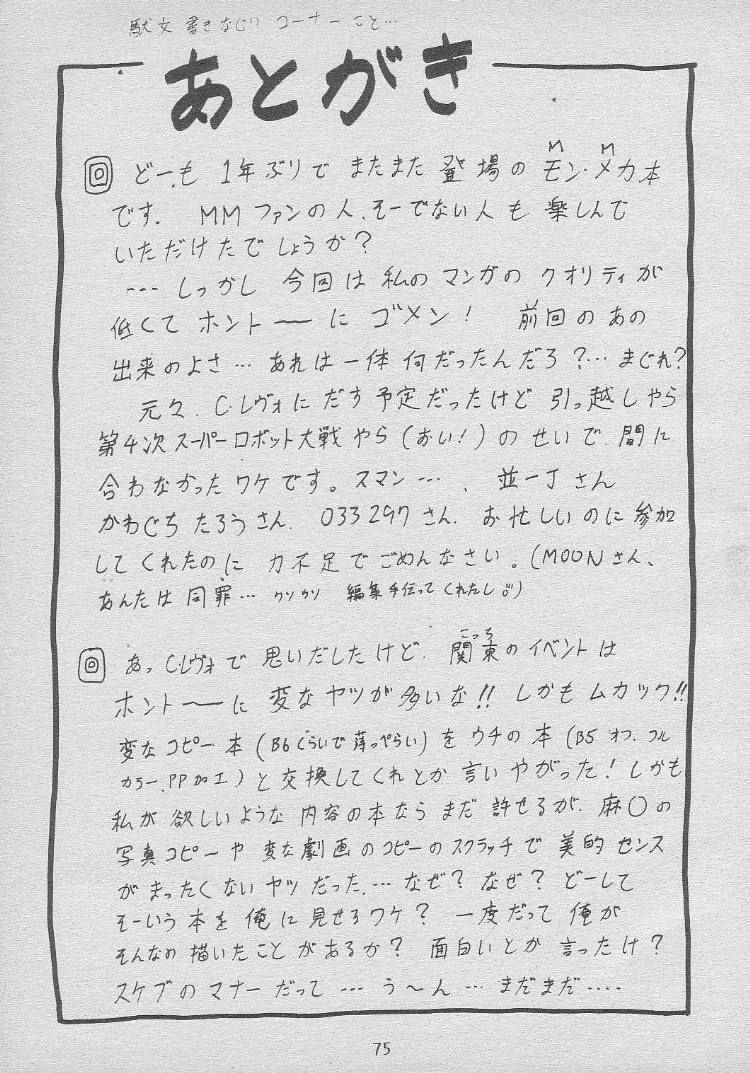 駄文書きなぐりコーナーこと…
あとがき
どーも 1年ぶりで またまた 登場の モン・メカ本
M M
です. MMファンの人、そーでない人も 楽しんで
いただけたでしょうか?
… しっかし 今回は 私の マンガの クオリティが
低くて ホントーーに ゴメン! 前回のあの
出来のよさ… あれは一体 何だったんだろ?… まぐれ?
元々、C・レヴォに だす予定だったけど 引っ越しやら
第4次 スーパーロボット大戦 やら (おい!) の せいで 間に
合わなかったワケです。スマン…、 並一丁さん
かわぐち たろうさん. 033297さん. お忙しいのに 参加
してくれたのに 力不足で ごめんなさい。(MOONさん、
あんたは 同罪… クソクソ 編集手伝って くれたし)
あっ C・レヴォで 思いだしたけど. 関東のイベントは
こっち
ホントーーに 変なヤツが 多いな!! しかも ムカック!!
変な コピー本 (B6くらいで 薄っぺらい) を ウチの 本 (B5 オフ. フル
カラー. PP加工) と 交換してくれとか 言いやがった! しかも
私が 欲しいような 内容の本なら まだ 許せるが、麻〇の
写真コピーや 変な劇画のコピーのスクラッチで 美的センス
がまったくないヤツだった.… なぜ? なぜ? どーして
そーいう 本を 俺に 見せるワケ? 一度だって 俺が
そんなの 描いたことが あるか? 面白いとか 言ったけ?
スケブのマナーだって … う〜ん … まだまだ ….
75